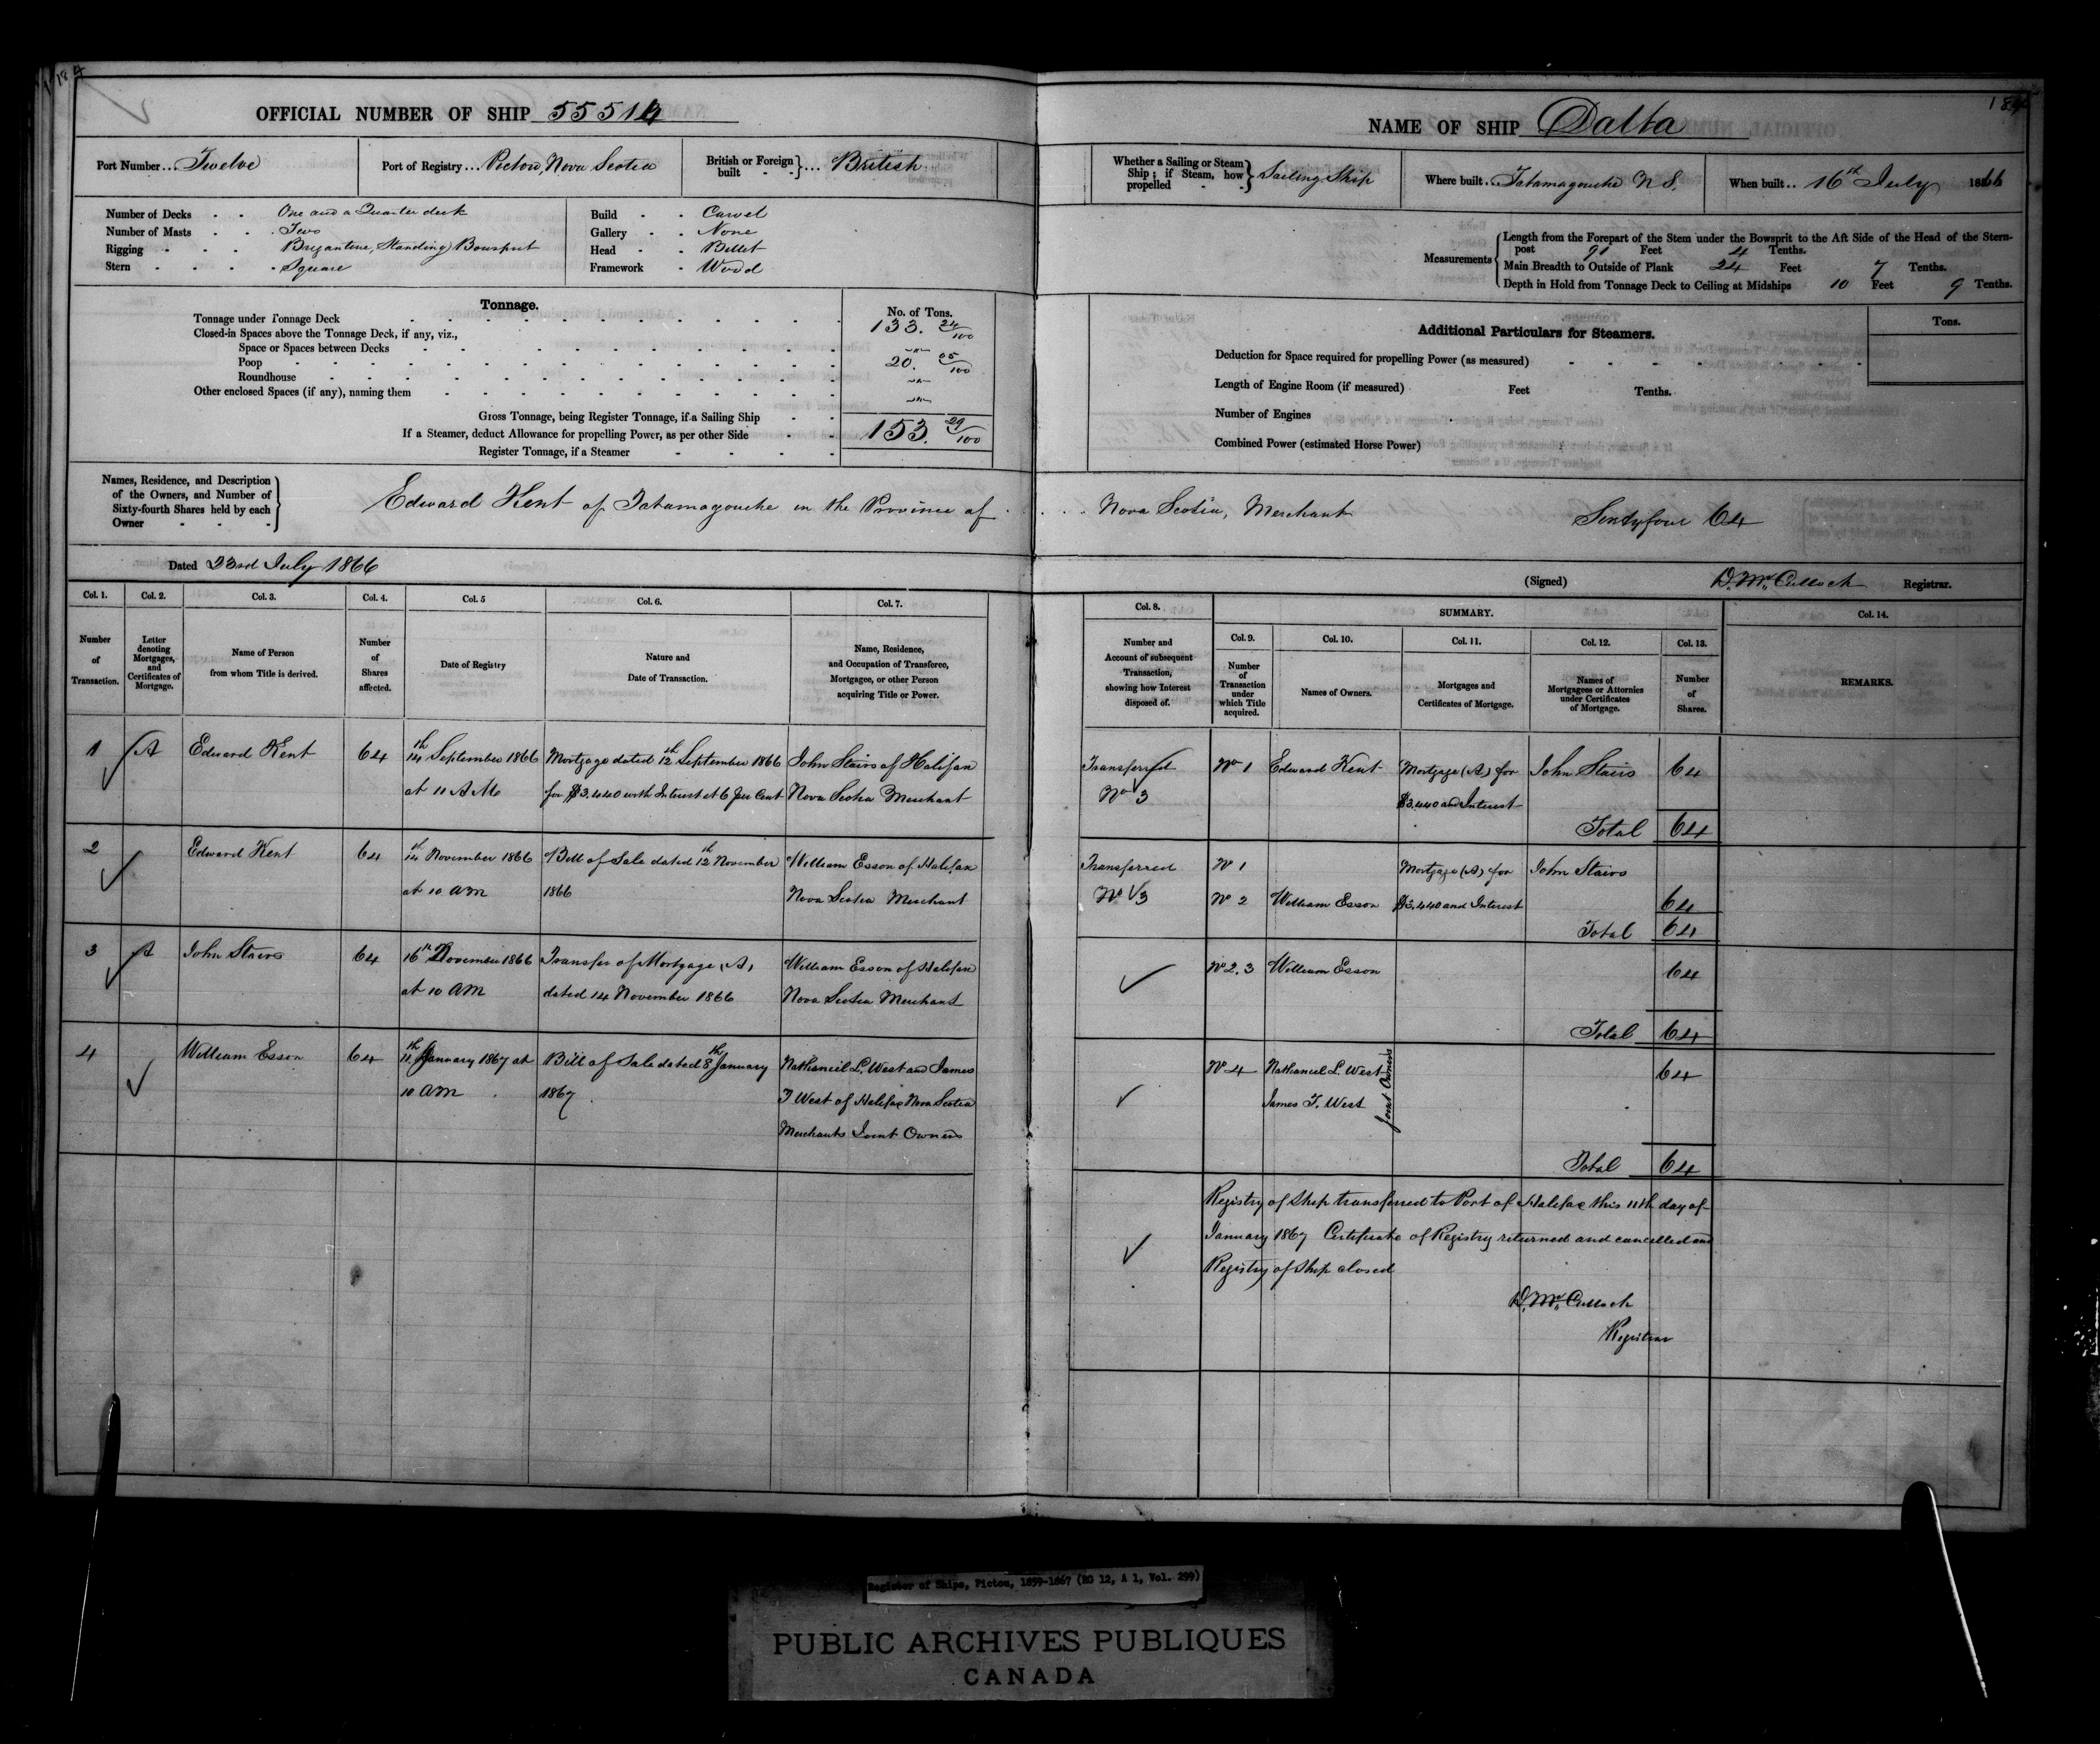 184
OFFICIAL NUMBER OF SHIP 55514
Port Number... Twelve
Port of Registry... Pictou, Nova Scotia
British or Foreign built - - } .... British
Number of Decks . . One and a Quarter deck
Number of Masts . . Two
Rigging - - - Brigantine, Standing Bowsprit
Stern - - - Square
Build - - Carvel
Gallery - - None
Head - - Billet
Framework - Wood
Tonnage.
No. of Tons.
Tonnage under Tonnage Deck 133. 24/100
Closed-in Spaces above the Tonnage Deck, if any, viz.,
Space or Spaces between Decks
Poop 20. 05/100
Roundhouse
Other enclosed Spaces (if any), naming them
Gross Tonnage, being Register Tonnage, if a Sailing Ship
If a Steamer, deduct Allowance for propelling Power, as per other Side 153. 29/100
Register Tonnage, if a Steamer
Names, Residence, and Description of the Owners, and Number of Sixty-fourth Shares held by each Owner
Edward Kent of Tatamagouche in the Province of
Dated 23rd July 1866
Col. 1. Col. 2. Col. 3. Col. 4. Col. 5 Col. 6. Col. 7.
Number of Transaction.
Letter denoting Mortgages, and Certificates of Mortgage.
Name of Person from whom Title is derived.
Number of Shares affected.
Date of Registry
Nature and Date of Transaction.
Name, Residence, and Occupation of Transferee, Mortgagee, or other Person acquiring Title or Power.
1 A Edward Kent 64 14th September 1866 Mortgage dated 12th September 1866 John Stairs of Halifax
at 11 AM for $3.440 with Interest at 6 per Cent Nova Scotia Merchant
2 Edward Kent 64 14th November 1866 Bill of Sale dated 12th November William Esson of Halifax
at 10 am 1866 Nova Scotia Merchant
3 A John Stairs 64 16th November 1866 Transfer of Mortgage (A) William Esson of Halifax
at 10 AM dated 14 November 1866 Nova Scotia Merchant
4 William Esson 64 11th January 1867 at Bill of Sale dated 8th January Nathaniel L. West and James
10 AM 1867 T West of Halifax Nova Scotia
Merchants Joint Owners
184
NAME OF SHIP Dalta
Whether a Sailing or Steam Ship; if Steam, how propelled - - } Sailing Ship
Where built .. Tatamagouche N S.
When built .. 16th July 1866
Measurements
Length from the Forepart of the Stem under the Bowsprit to the Aft Side of the Head of the Stern-
post 91 Feet 4 Tenths.
Main Breadth to Outside of Plank 24 Feet 7 Tenths.
Depth in Hold from Tonnage Deck to Ceiling at Midships 10 Feet 9 Tenths.
Additional Particulars for Steamers.
Tons.
Deduction for Space required for propelling Power (as measured)
Length of Engine Room (if measured) Feet Tenths.
Number of Engines
Combined Power (estimated Horse Power)
Nova Scotia, Merchant Sixtyfour 64
(Signed) D. McCulloch Registrar.
Col. 8. SUMMARY. Col. 14.
Col. 9. Col. 10. Col. 11. Col. 12. Col. 13.
Number and Account of subsequent Transaction, showing how Interest disposed of.
Number of Transaction under which Title acquired.
Names of Owners.
Mortgages and Certificates of Mortgage.
Names of Mortgagees or Attornies under Certificates of Mortgage.
Number of Shares.
REMARKS.
Transferred No 1 Edward Kent Mortgage (A) for John Stairs 64
No 3 $3.440 and Interest
Total 64
Transferred No 1 Mortgage (A) for John Stairs
No 3 No 2 William Esson $3.440 and Interest 64
Total 64
No 2. 3 William Esson 64
Total 64
No 4 Nathaniel L. West 64
James T. West
Joint Owners
Total 64
Registry of Ship transferred to Port of Halifax this 11th day of
January 1867 Certificate of Registry returned and cancelled and
Registry of Ship closed
D. McCulloch
Registrar
Register of Ships, Pictou, 1859-1867 (RG 12, A 1, Vol. 299)
PUBLIC ARCHIVES PUBLIQUES
CANADA